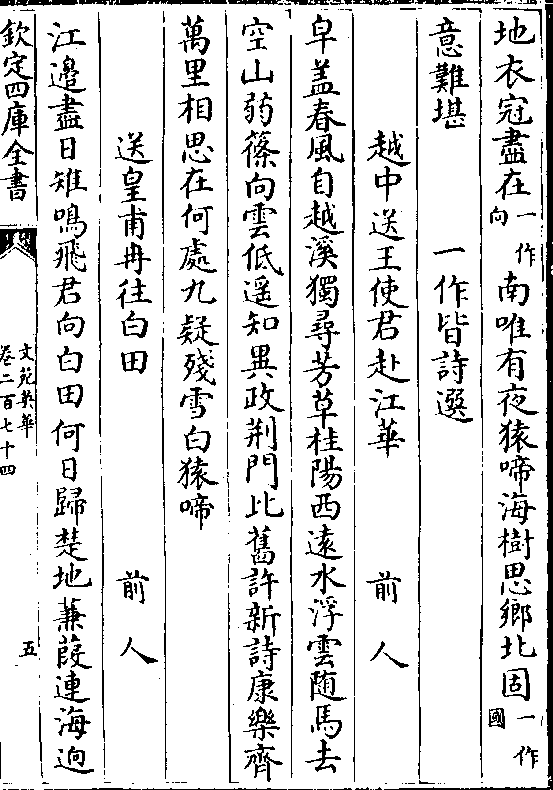 地衣冠盡在一作向南唯有夜猿啼海樹思鄉北固一作國
意難堪　一作皆詩選
越中送王使君赴江華　前人
皁盖春風自越溪獨尋芳草桂陽西逺水浮雲随馬去
空山弱篠向雲低遥知異政荆門比舊許新詩康樂齊
萬里相思在何處九疑殘雪白猿啼
送皇甫冉往白田　前人
江邉盡日雉鳴飛君向白田何日歸楚地蒹葭連海逈
欽定四庫全書
文苑英華
卷二百七十四
五